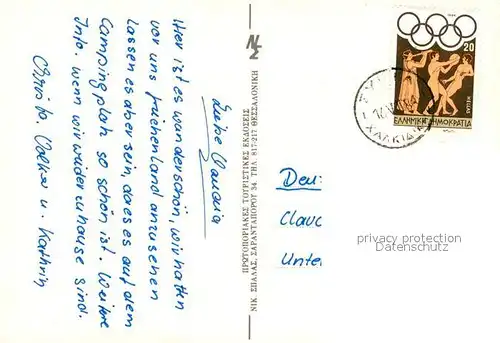 Liebe Claudia
Hier ist es wunderschön, wir hatten
vor uns Griechenland anzusehen
lassen es aber sein, da es es auf dem
Campingplatz so schön ist. Weitere
Info. wenn wir wieder zuhause sind.
Christa, Volker u. Kathrin
ΠΡΩΤΟΠΟΡΙΑΚΕΣ ΤΟΥΡΙΣΤΙΚΕΣ ΕΚΔΟΣΕΙΣ
ΝΙΚ. ΣΠΑΛΑΣ, ΣΑΡΑΝΤΑΠΟΡΟΥ 34 ΤΗΛ 817-217 ΘΕΣΣΑΛΟΝΙΚΗ
20
HELLAS
ΕΛΛΗΝΙΚΗ ΔΗΜΟΚΡΑΤΙΑ
ΧΑΛΚΙΔΙ
Deu
Claud
Unter
privacy protection